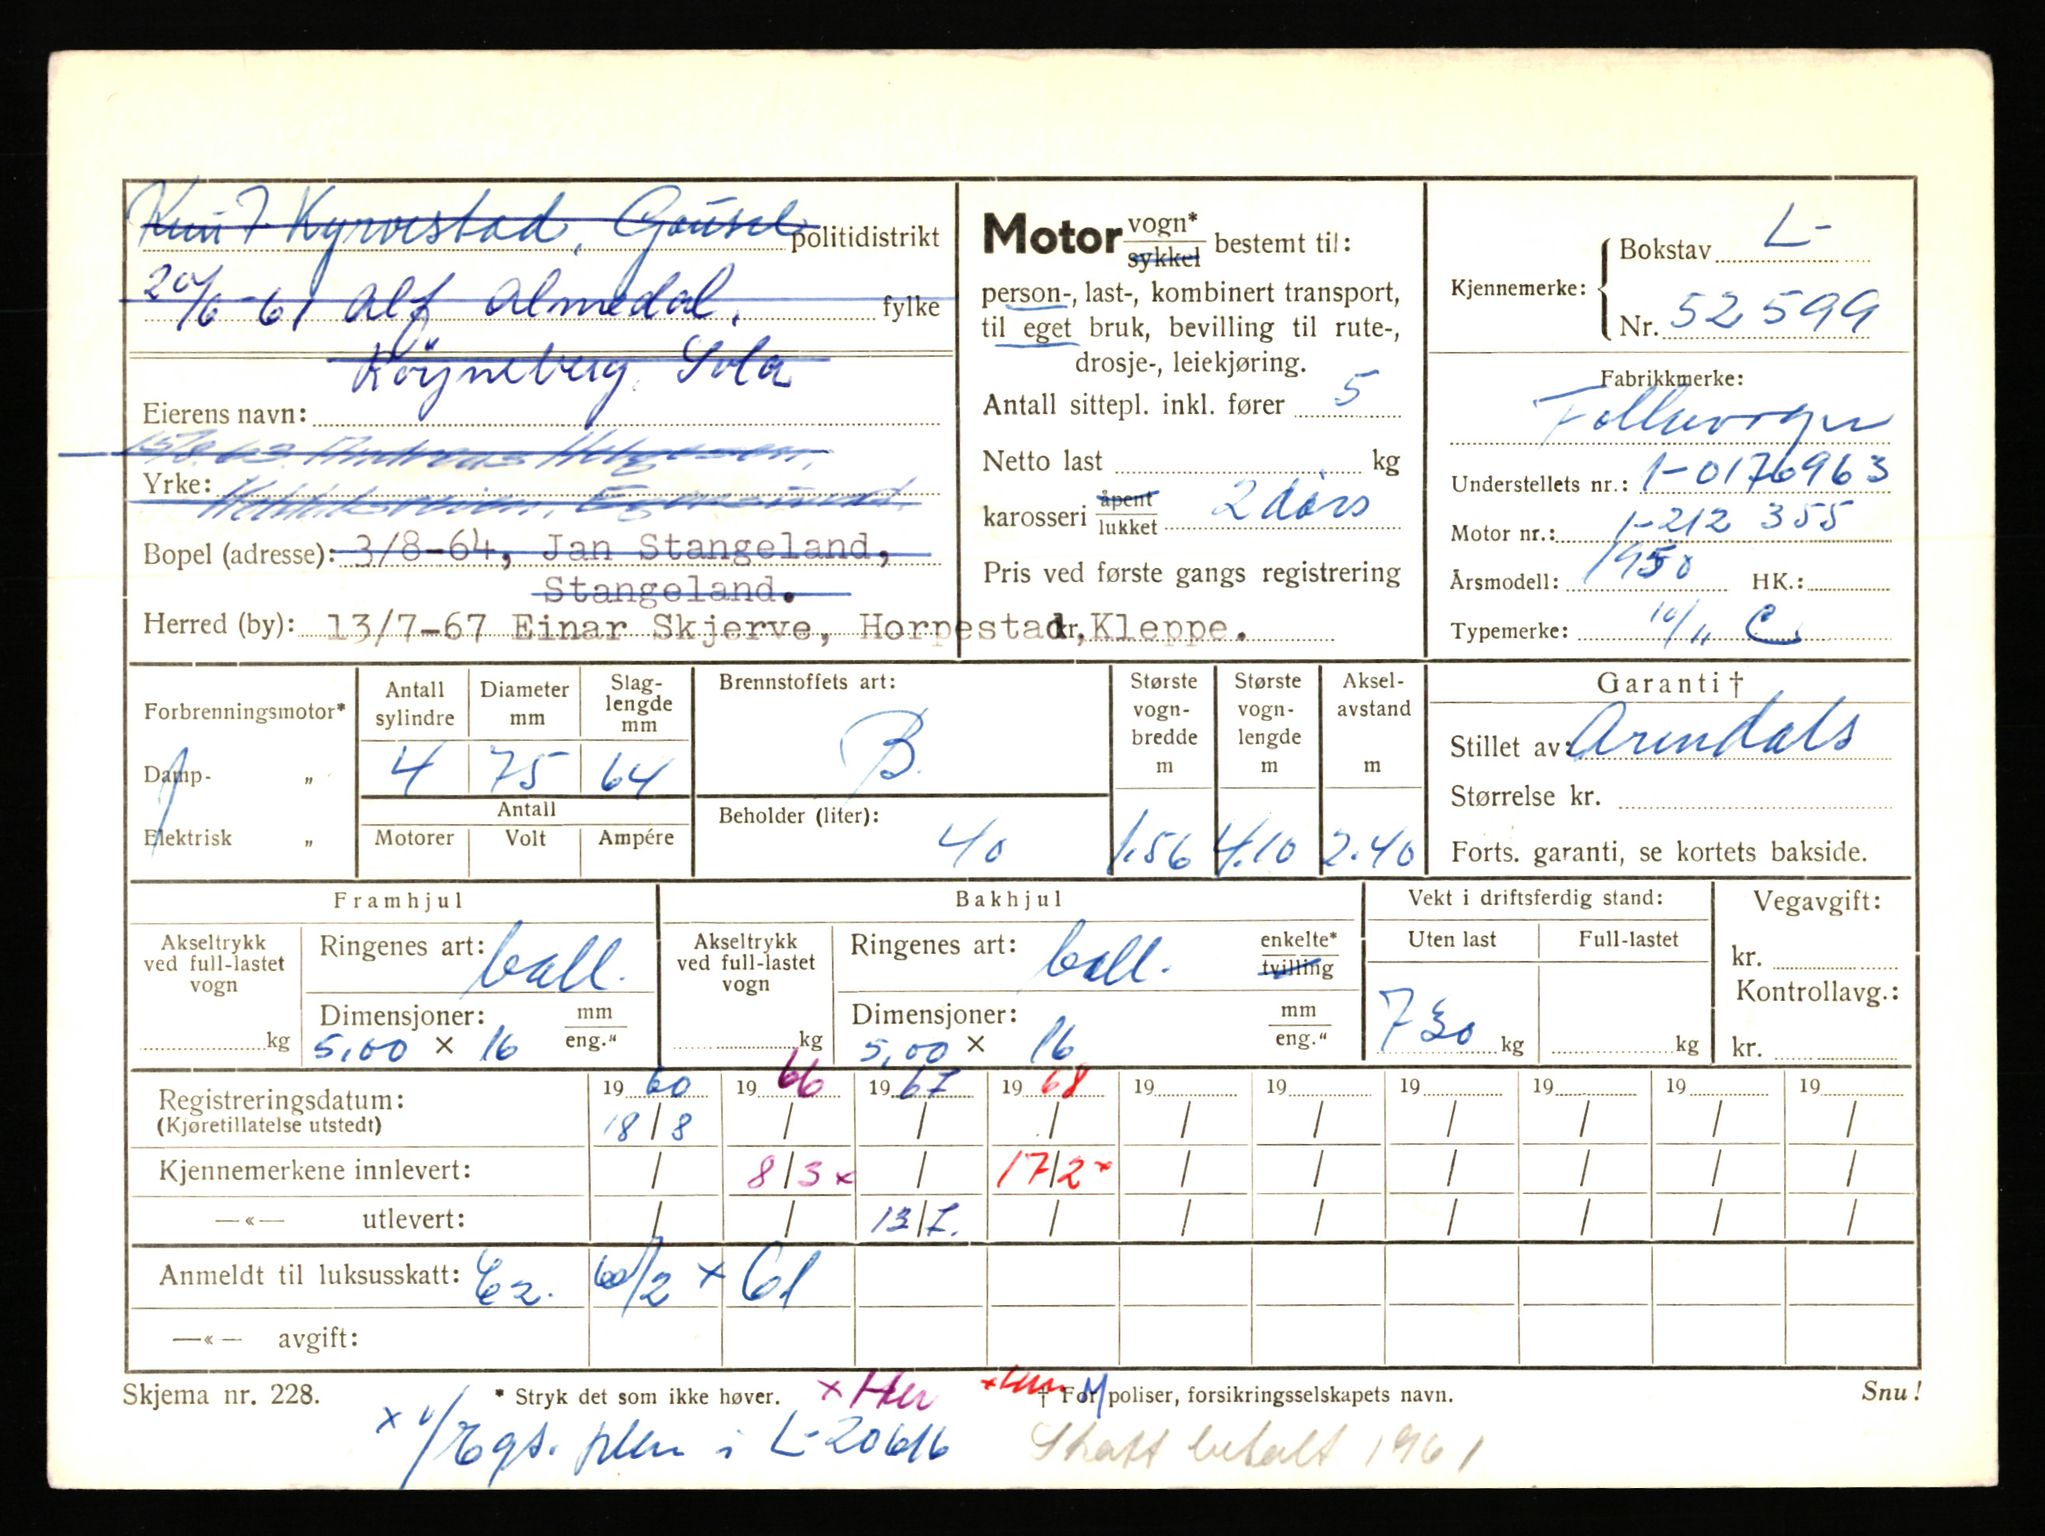 Knut Kyrvestad, Gausel politidistrikt
20/6-61 Alf Almedal, fylke
Röyneberg, Sola
Eierens navn:
15/8.63 Andreas Helgesen,
Yrke:
Egersund.
Bopel (adresse): 3/8-64, Jan Stangeland,
Stangeland.
Herred (by): 13/7-67 Einar Skjerve, Horpestad, Kleppe.
Motor vogn* sykkel bestemt til:
person-, last-, kombinert transport,
til eget bruk, bevilling til rute-,
drosje-, leiekjøring.
Antall sittepl. inkl. fører 5
Netto last kg
karosseri åpent lukket 2 dørs
Pris ved første gangs registrering
kr.
Kjennemerke: Bokstav L-
Nr. 52599
Fabrikkmerke:
Folkevogn
Understellets nr.: 1-0176963
Motor nr.: 1-212 355
Årsmodell: 1950 HK.:
Typemerke: 10/11 C
Forbrenningsmotor*
Damp- "
Elektrisk "
Antall sylindre 4
Diameter mm 75
Slag-lengde mm 64
Antall
Motorer Volt Ampére
Brennstoffets art:
B.
Beholder (liter):
40
Største vogn-bredde m 1.56
Største vogn-lengde m 4.10
Aksel-avstand m 2.40
Garanti †
Stillet av: Arendals
Størrelse kr.
Forts. garanti, se kortets bakside.
Framhjul
Akseltrykk ved full-lastet vogn
kg
Ringenes art: ball.
Dimensjoner: mm eng."
5,00 × 16
Bakhjul
Akseltrykk ved full-lastet vogn
kg
Ringenes art: ball. enkelte* tvilling
Dimensjoner: mm eng."
5,00 × 16
Vekt i driftsferdig stand:
Uten last Full-lastet
730 kg kg
Vegavgift:
kr.
Kontrollavg.:
kr.
19 60 19 66 19 67 19 68 19 19 19 19 19 19
Registreringsdatum:
(Kjøretillatelse utstedt) 18/8 / / / / / / / / /
Kjennemerkene innlevert: / 8/3 x / 17/2 x / / / / / /
—«— utlevert: / / 13/7. / / / / / / /
Anmeldt til luksusskatt: 60/2 x 61
—«— avgift:
Skjema nr. 228.
* Stryk det som ikke høver.
x Her
† For poliser, forsikringsselskapets navn.
Snu!
x i L-20616
Skatt betalt 1961